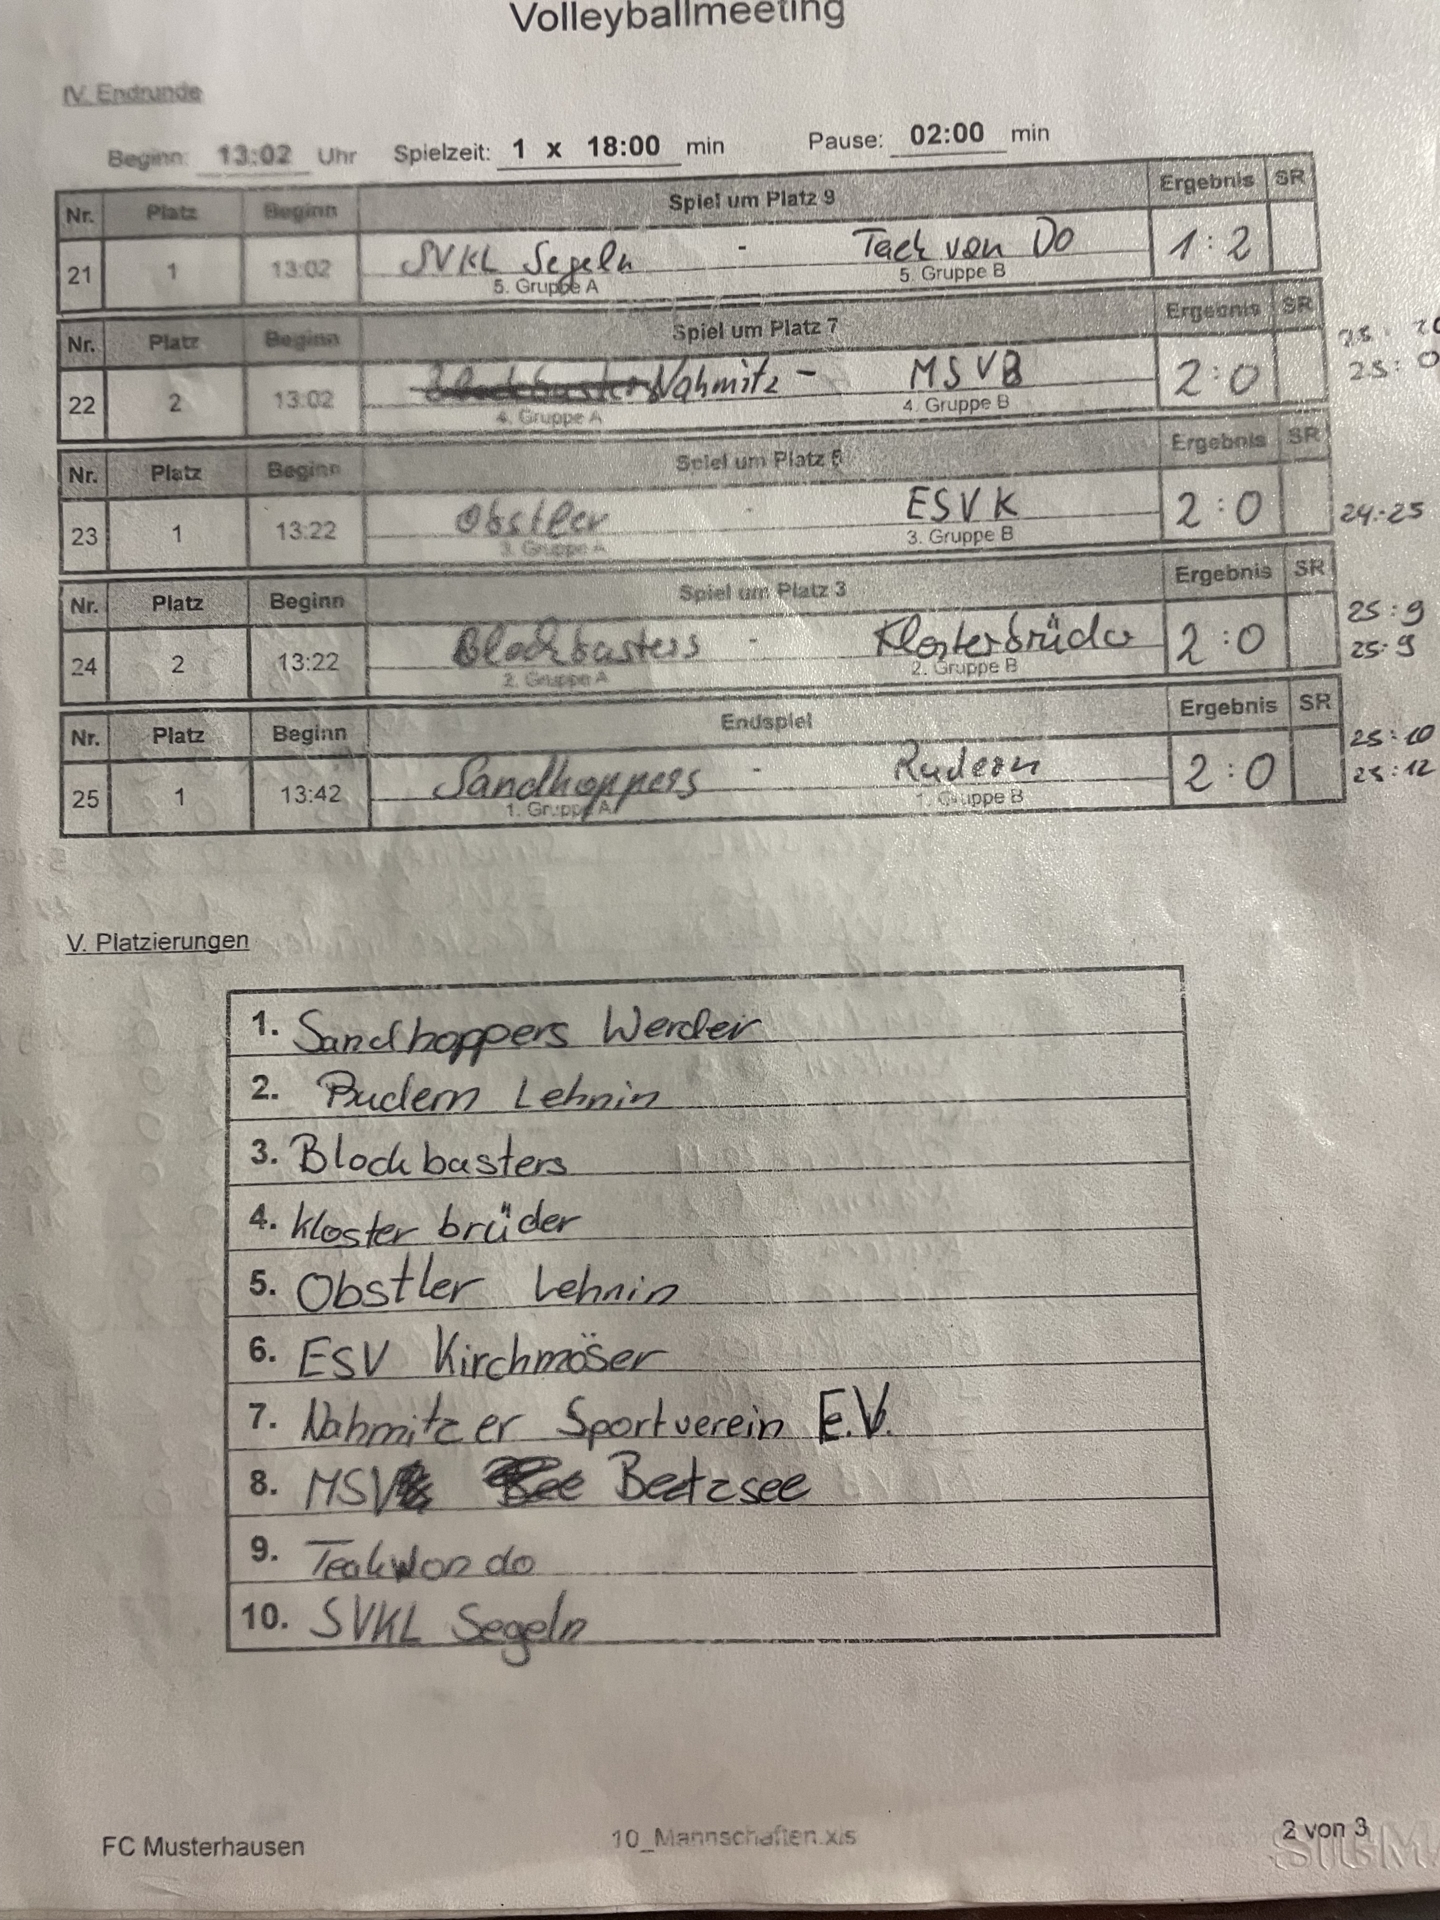 Volleyballmeeting
IV. Endrunde
Beginn: 13:02 Uhr Spielzeit: 1 x 18:00 min Pause: 02:00 min
Nr. Platz Beginn Spiel um Platz 9 Ergebnis SR
21 1 13:02 SVKL Segeln - Taek von Do 1:2
5. Gruppe A 5. Gruppe B
Nr. Platz Beginn Spiel um Platz 7 Ergebnis SR
22 2 13:02 Blockbusters Nahmitz - MSVB 2:0
25:
25:0
4. Gruppe A 4. Gruppe B
Nr. Platz Beginn Spiel um Platz 5 Ergebnis SR
23 1 13:22 Obstler - ESVK 2:0 24:25
3. Gruppe A 3. Gruppe B
Nr. Platz Beginn Spiel um Platz 3 Ergebnis SR
24 2 13:22 Blockbasters - Klosterbrüder 2:0
25:9
25:9
2. Gruppe A 2. Gruppe B
Nr. Platz Beginn Endspiel Ergebnis SR
25 1 13:42 Sandhoppers - Rudern 2:0
25:10
25:12
1. Gruppe A 1. Gruppe B
V. Platzierungen
1. Sandhoppers Werder
2. Rudern Lehnin
3. Blockbasters
4. Klosterbrüder
5. Obstler Lehnin
6. ESV Kirchmöser
7. Nahmitzer Sportverein E.V.
8. MSV Beetzsee
9. Teakwon do
10. SVKL Segeln
FC Musterhausen 10_Mannschaften.xls 2 von 3